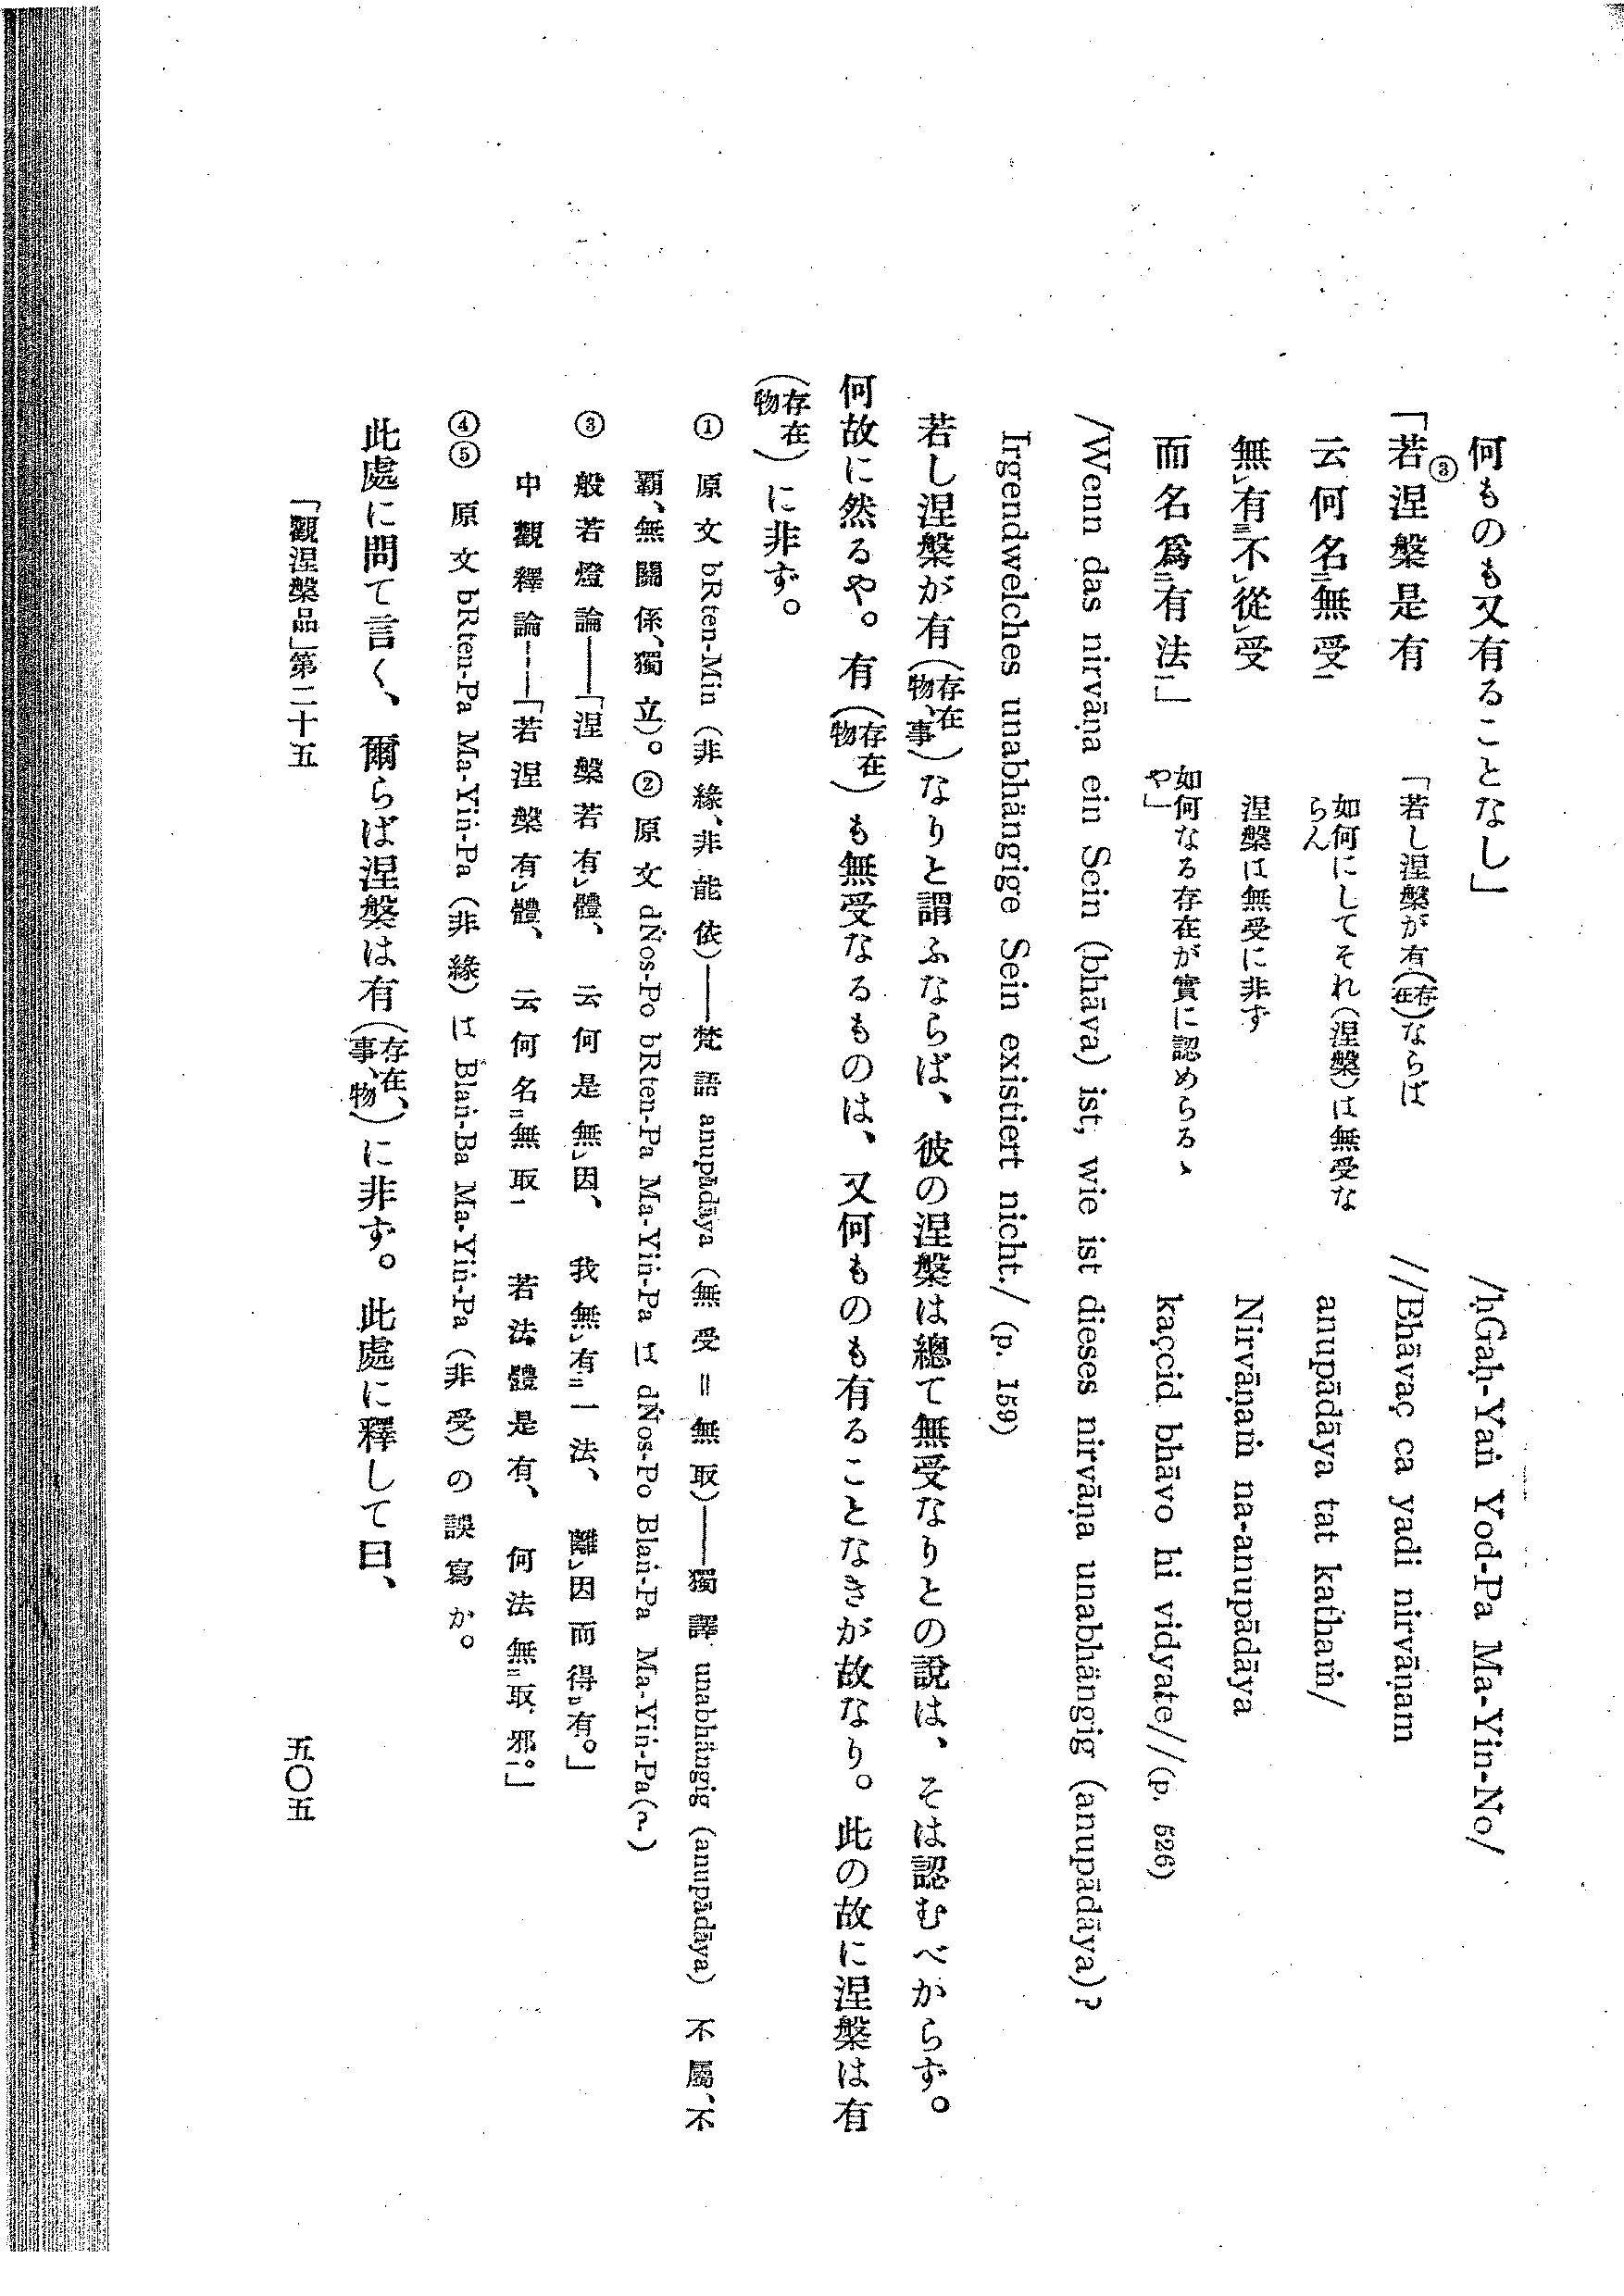 何ものも又有ることなし」 /ḥGaḥ-Yaṅ Yod-Pa Ma-Yin-No/
③「若涅槃是有 「若し涅槃が有(存在)ならば //Bhāvaç ca yadi nirvāṇam
云何名㆓無受㆒ 如何にしてそれ(涅槃)は無受ならん anupādāya tat kathaṁ/
無㆑有㆔不㆑從㆑受 涅槃は無受に非ず Nirvāṇaṁ na-anupādāya
而名爲㆓有法㆒」 如何なる存在が實に認めらるゝや」 kaççid bhāvo hi vidyate//(p. 526)
/Wenn das nirvāṇa ein Sein (bhāva) ist, wie ist dieses nirvāṇa unabhängig (anupādāya)?
Irgendwelches unabhängige Sein existiert nicht./ (p. 159)
若し涅槃が有(存在物、事)なりと謂ふならば、彼の涅槃は總て無受なりとの說は、そは認むべからず。
何故に然るや。有(存在物)も無受なるものは、又何ものも有ることなきが故なり。此の故に涅槃は有
(存在物)に非ず。
① 原文 bRten-Min (非緣、非能依)——梵語 anupādāya (無受=無取)——獨譯 unabhängig (anupādāya) 不屬、不
覊、無關係、獨立)。② 原文 dṄos-Po bRten-Pa Ma-Yiṅ-Pa は dṄos-Po Blaṅ-Pa Ma-Yiṅ-Pa(?)
③ 般若燈論——「涅槃若有㆑體、 云何是無㆑因、 我無㆑有㆓一法、 離㆑因而得㆒有。」
中觀釋論——「若涅槃有㆑體、 云何名㆓無取㆒ 若法體是有、 何法無㆓取邪㆒。」
④⑤ 原文 bRten-Pa Ma-Yiṅ-Pa (非緣) は Blaṅ-Ba Ma-Yiṅ-Pa (非受) の誤寫か。
此處に問て言く、爾らば涅槃は有(存在、事、物)に非ず。此處に釋して曰、
「觀涅槃品」第二十五 五〇五